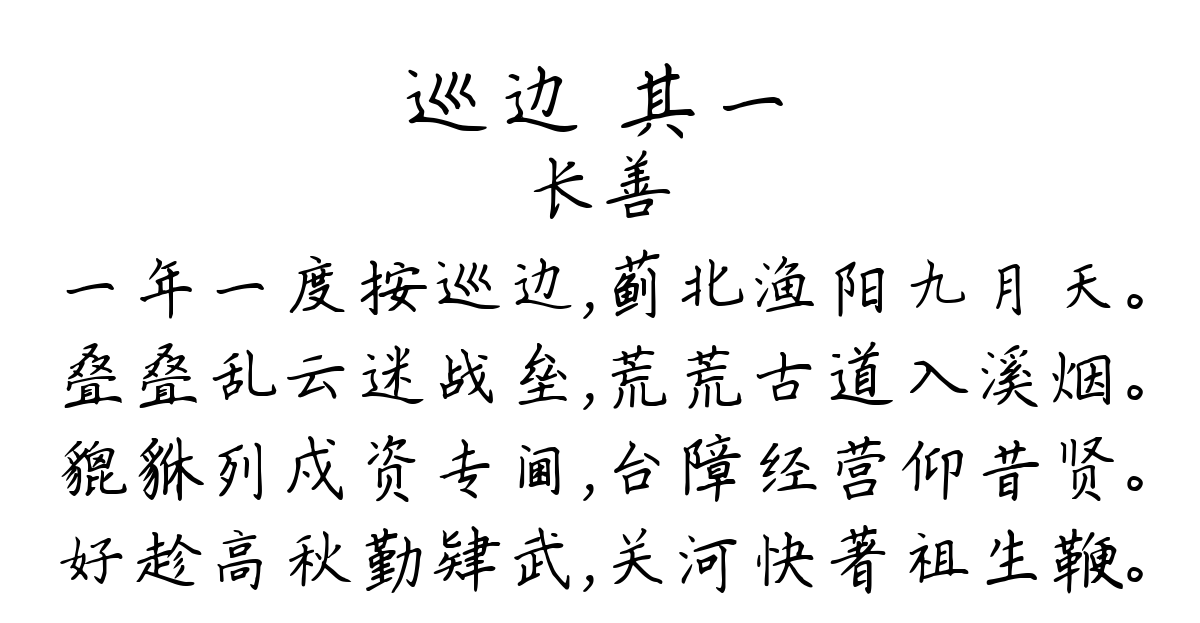 巡边 其一
长善
一年一度按巡边,蓟北渔阳九月天。
叠叠乱云迷战垒,荒荒古道入溪烟。
貔貅列戍资专阃,台障经营仰昔贤。
好趁高秋勤肄武,关河快著祖生鞭。